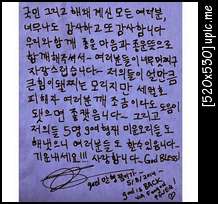 국민 그리고 해외 계신 모든 여러분,
너무나도 감사하고 또 감사합니다
우리와 함께 좋은 마음과 좋은뜻으로
함께해주셔서~ 여러분들이 너무 멋지구
자랑스럽습니다~ 저희들이 얼만큼
큰힘이됐는 모르지만 세월호
피해자 여러분께 조금이나도 도움이
됐으면 좋겠습니다~ 그리고
저희들 5명 god 형제 믿음으리들도
해냈으니 여러분들도 할수있을겁니다
기운내세요!!! 사랑합니다. God Bless!
god
5/8/2014
god is BACK
[520x530] upic.me